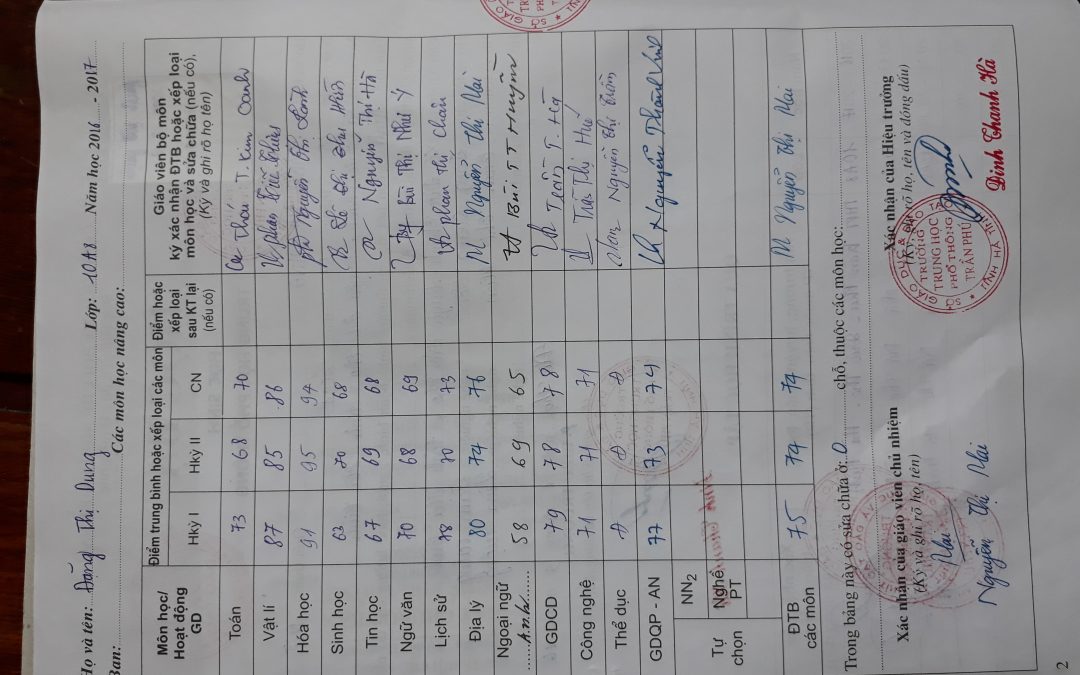 Họ và tên: Đặng Thị Dung Lớp: 10A8 Năm học 2016 - 2017
Ban: Các môn học nâng cao:
Môn học/ Hoạt động GD
Điểm trung bình hoặc xếp loại các môn
Hkỳ I Hkỳ II CN
Điểm hoặc xếp loại sau KT lại (nếu có)
Giáo viên bộ môn ký xác nhận ĐTB hoặc xếp loại môn học và sửa chữa (nếu có), (Ký và ghi rõ họ tên)
Toán 73 68 70 T. Kim Oanh
Vật lí 87 85 86
Hóa học 91 95 94 Nguyễn
Sinh học 63 70 68
Tin học 67 69 68 Nguyễn Thị Hà
Ngữ văn 70 68 69 Bùi Thị Như Ý
Lịch sử 78 70 73 Phan Thị Chân
Địa lý 80 74 76 Nguyễn Thị Mai
Ngoại ngữ A.n.h 58 69 65 Bùi T T Huyền
GDCD 79 78 78 Trần T. Hà
Công nghệ 71 71 71 Trần Thị Huế
Thể dục Đ Đ Đ Nguyễn Thị
GDQP - AN 77 73 74 Nguyễn
Tự chọn
NN2
Nghề PT
ĐTB các môn 75 74 74 Nguyễn Thị Mai
Trong bảng này có sửa chữa ở: 0 chỗ, thuộc các môn học:
Xác nhận của giáo viên chủ nhiệm
(Ký và ghi rõ họ, tên)
Mai
Nguyễn Thị Mai
Xác nhận của Hiệu trưởng
(Ký, ghi rõ họ, tên và đóng dấu)
TRƯỜNG
TRUNG HỌC
PHỔ THÔNG
TRẦN PHÚ
TỈNH HÀ TĨNH
Đinh Thanh Hà
2